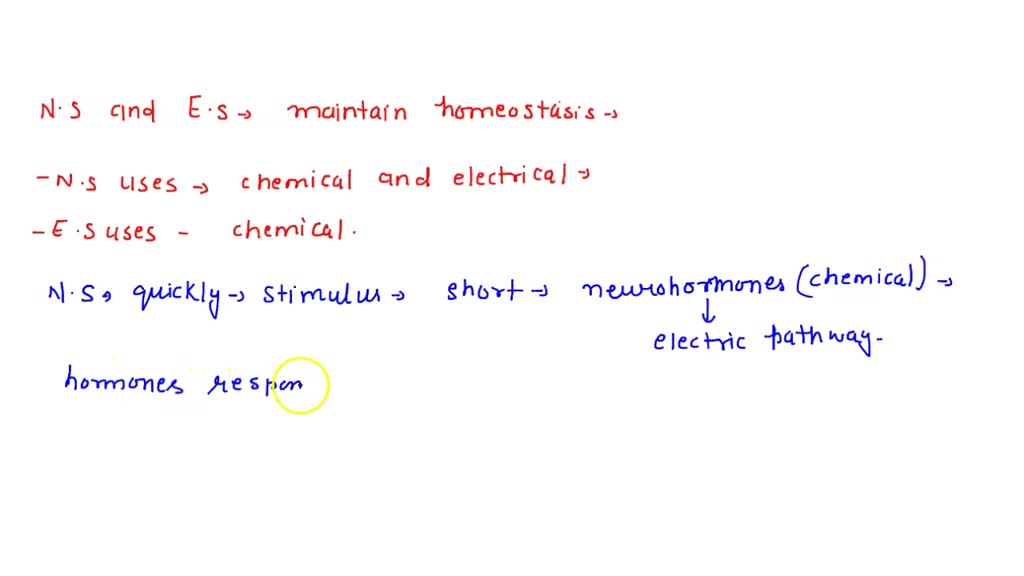 N.S and E.S → maintain homeostasis →
- N.S uses → chemical and electrical →
- E.S uses - chemical.
N.S, quickly → stimulus → short → neurohormones (chemical) →
↓
electric pathway.
hormones respon